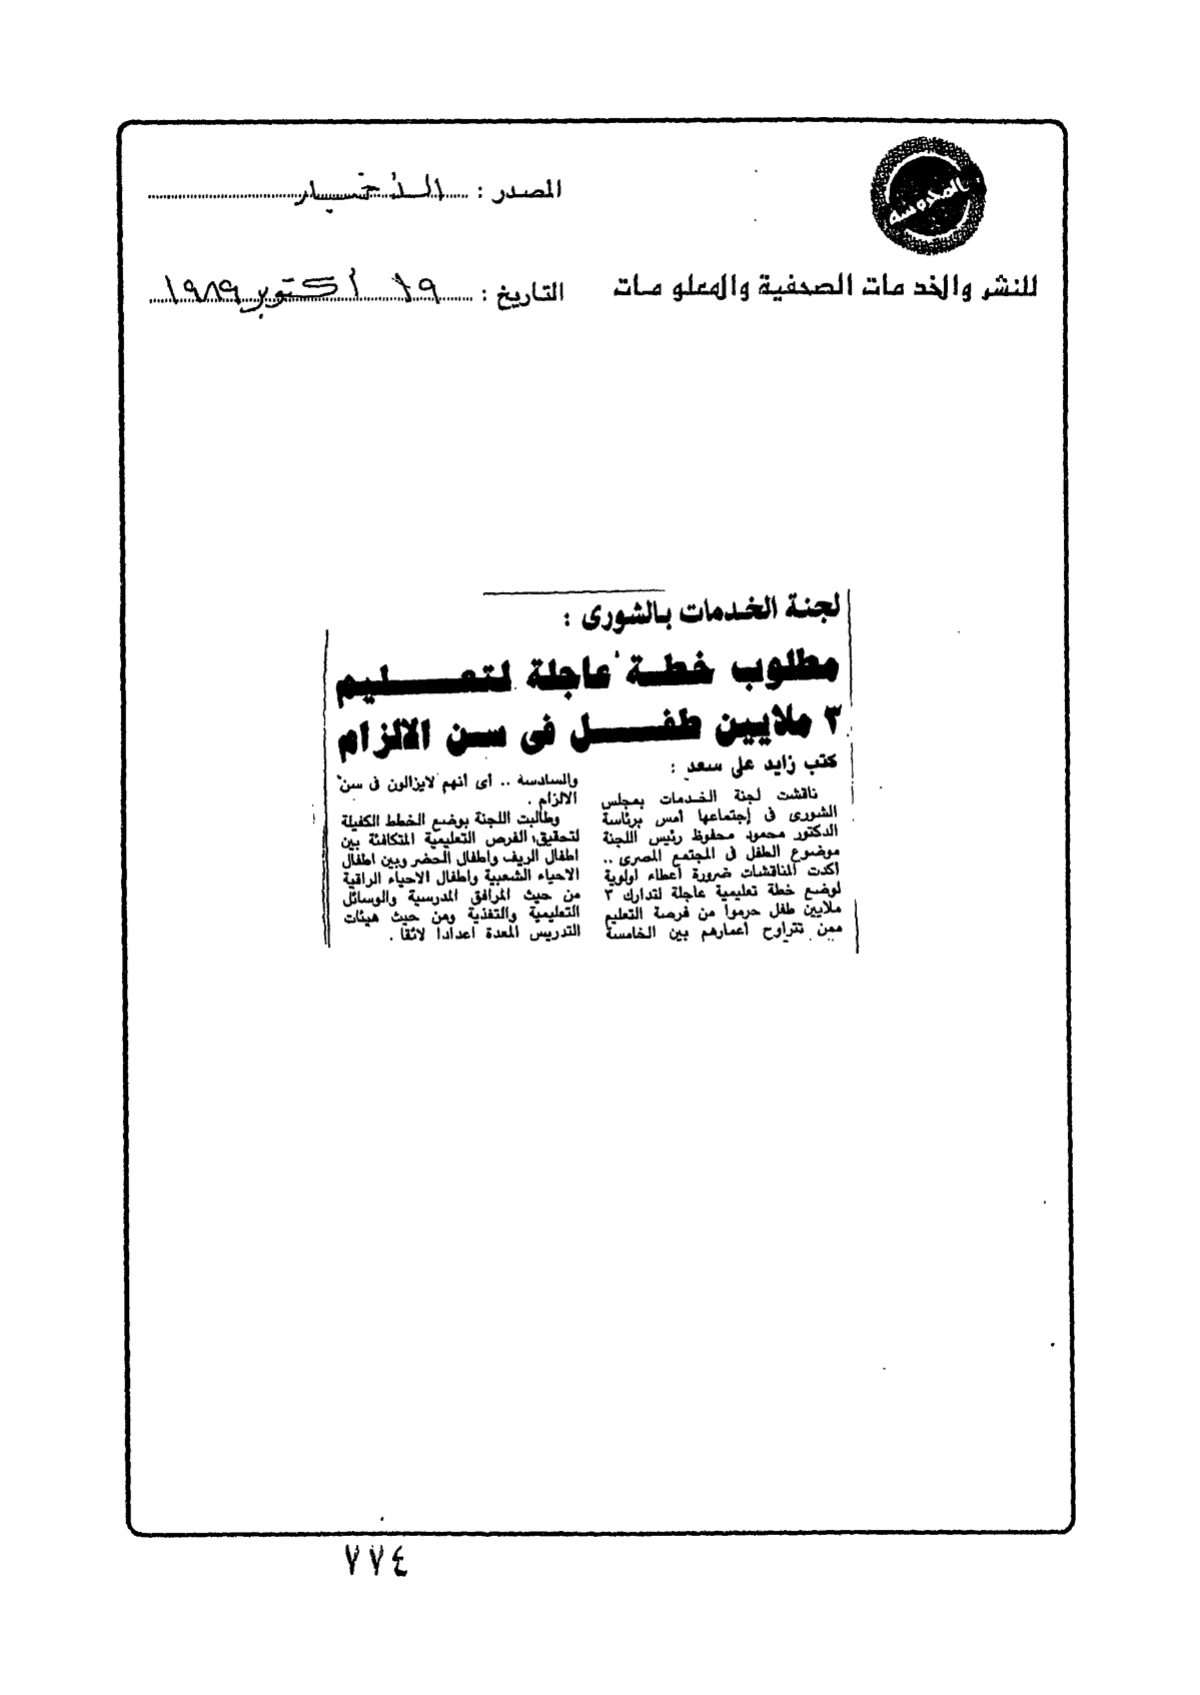 المحروسة
للنشر والخدمات الصحفية والمعلومات
المصدر : الأخبار
التاريخ : ١٩ أكتوبر ١٩٨٩
لجنة الخدمات بالشورى :
مطلوب خطة عاجلة لتعليم
٣ ملايين طفل فى سن الالزام
كتب زايد على سعد :
ناقشت لجنة الخدمات بمجلس
الشورى فى إجتماعها أمس برئاسة
الدكتور محمود محفوظ رئيس اللجنة
موضوع الطفل فى المجتمع المصرى ..
أكدت المناقشات ضرورة أعطاء اولوية
لوضع خطة تعليمية عاجلة لتدارك ٣
ملايين طفل حرموا من فرصة التعليم
ممن تتراوح أعمارهم بين الخامسة
والسادسة .. أى أنهم لايزالون فى سن
الالزام .
وطالبت اللجنة بوضع الخطط الكفيلة
لتحقيق الفرص التعليمية المتكافئة بين
اطفال الريف واطفال الحضر وبين اطفال
الاحياء الشعبية واطفال الاحياء الراقية
من حيث المرافق المدرسية والوسائل
التعليمية والتغذية ومن حيث هيئات
التدريس المعدة اعدادا لائقا .
٧٧٤